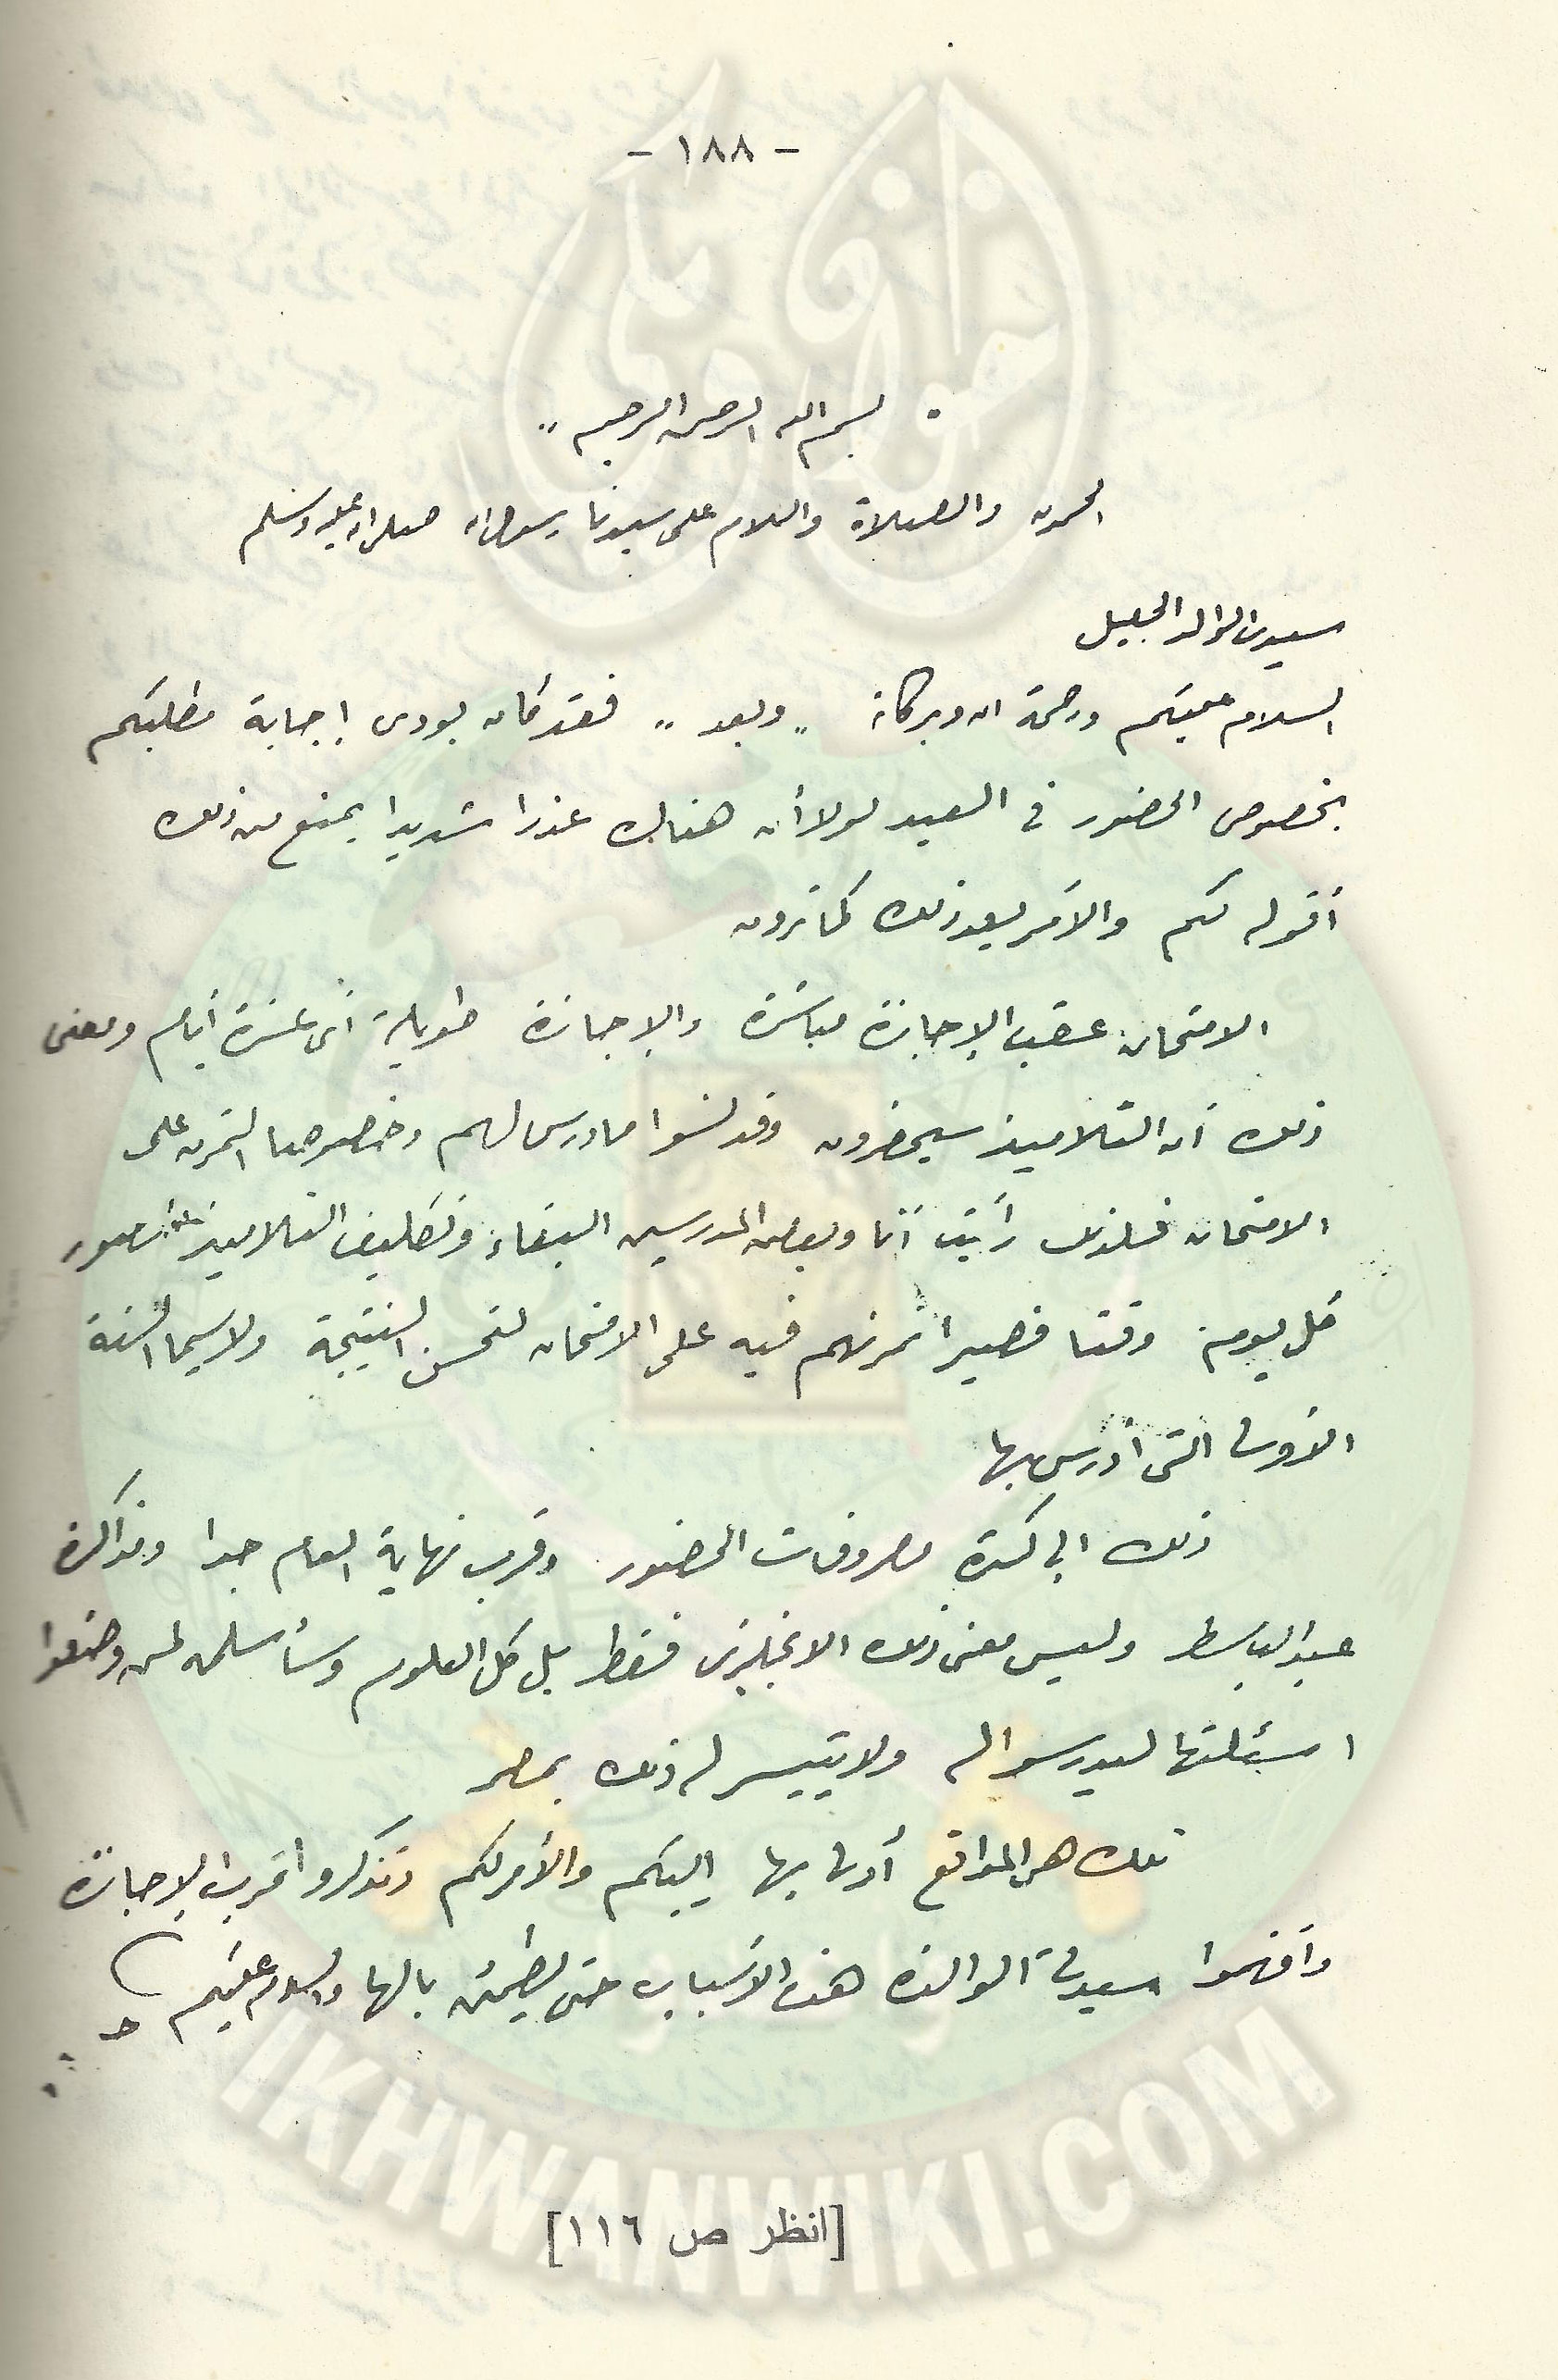 - ١٨٨ -
" بسم الله الرحمن الرحيم "
الحمد لله والصلاة والسلام على سيدنا رسول الله صلى الله عليه وسلم
سيدى الوالد الجليل
السلام عليكم ورحمة الله وبركاته " وبعد " فقد كان بودى إجابة مطلبكم
بخصوص الحضور فى العيد لولا أن هناك عذرا شديدا يمنع من ذلك
أقوله لكم والأمر بعد ذلك كما ترون
الامتحان عقب الإجازة مباشرة والإجازة طويلة اثنى عشرة أيام ومعنى
ذلك أن التلاميذ سيحضرون وقد نسوا ما درس لهم وخصوصا التمرن على
الامتحان فلذلك رأيت أنا وبعض المدرسين البقاء وتكليف التلاميذ الحضور
كل يوم وقتا قصيرا نمرنهم فيه على الامتحان لتحسن النتيجة ولا سيما السنة
الأولى التى أدرس بها
ذلك إلى كثرة مصروفات الحضور وقرب نهاية العام جدا ومذاكرة
عبد الباسط وليس معنى ذلك الانجليزى فقط بل كل العلوم وسأسلمه لمن وضعوا
اسئلتها ليدرسوا له ولا يتيسر له ذلك بمصر
تلك هى الموانع أدلى بها إليكم والأمر لكم وتذكروا قرب الإجازة
وأفهموا سيدتى الوالدة هذه الأسباب حتى يطمئن بالها والسلام عليكم
[انظر ص ١١٦]
IKHWANWIKI.COM